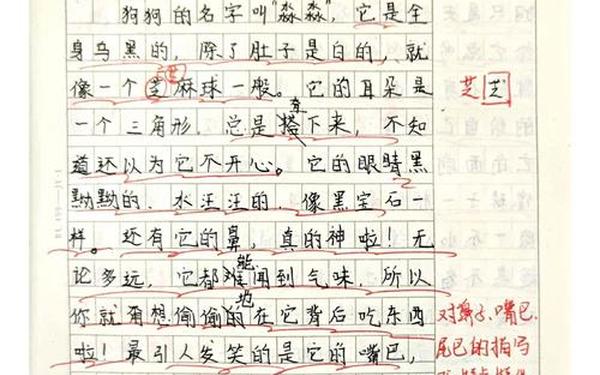 狗狗的名字叫"淼淼",它是全
身乌黑的,除了肚子是白的,就
像一个芝麻球一般。它的耳朵是
芝芝
一个三角形,总是搭下来,不知
道还以为它不开心。它的眼睛黑
黝黝的、水汪汪的,像黑宝石一
样。还有它的鼻,真的神啦!无
能
论多远,它都难闻到气味,所以
地
你就甭想偷偷的在它背后吃东西
对鼻子、嘴巴、
啦!最引人发笑的是它的嘴巴,
尾巴的描写